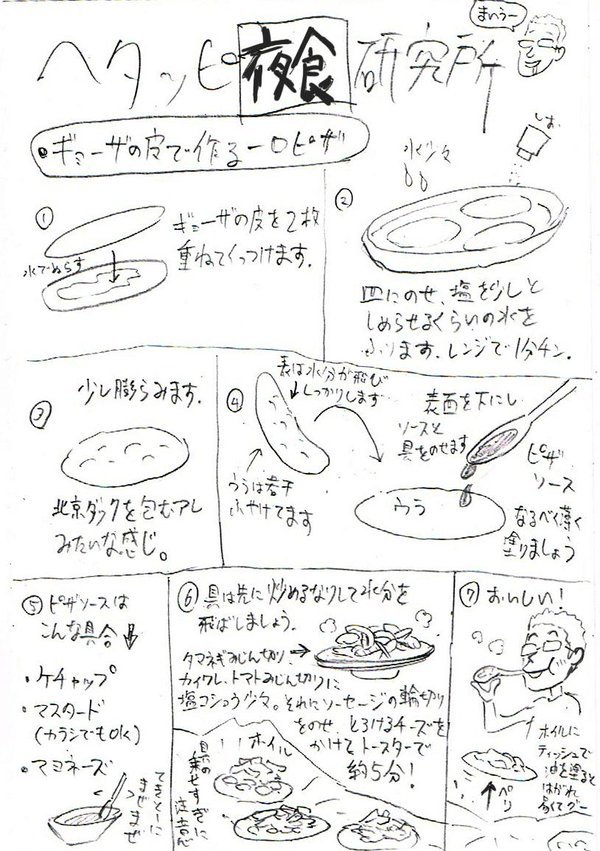 まいうー
ヘタッピ夜食研究所
・ギョーザの皮で作る一口ピザ
①
ギョーザの皮を2枚
重ねてくっつけます.
水でぬらす
②
水少々
しお
皿にのせ、塩を少しと
しめらせるくらいの水を
ふります.レンジで1分チン.
③
少し膨らみます.
北京ダックを包むアレ
みたいな感じ。
④
表は水分が飛び
しっかりします
うらは若干
ふやけてます
表面を下にし
ソースと
具をのせます
ウラ
ピザ
ソース
なるべく薄く
塗りましょう
⑤ピザソースは
こんな具合
・ケチャップ
・マスタード
(カラシでもOK)
・マヨネーズ
てきとーに
まぜまぜ
⑥具は先に炒めるなりして水分を
飛ばしましょう.
タマネギみじん切り.
カイワレ、トマトみじん切りに
塩コショウ少々。それにソーセージの輪切り
をのせ、とろけるチーズを
かけてトースターで
約5分!
ホイル
具の
乗せすぎに
注意
⑦おいしい!
ホイルに
ティッシュで
油を塗ると
はがれ
易くてグー
ペリ